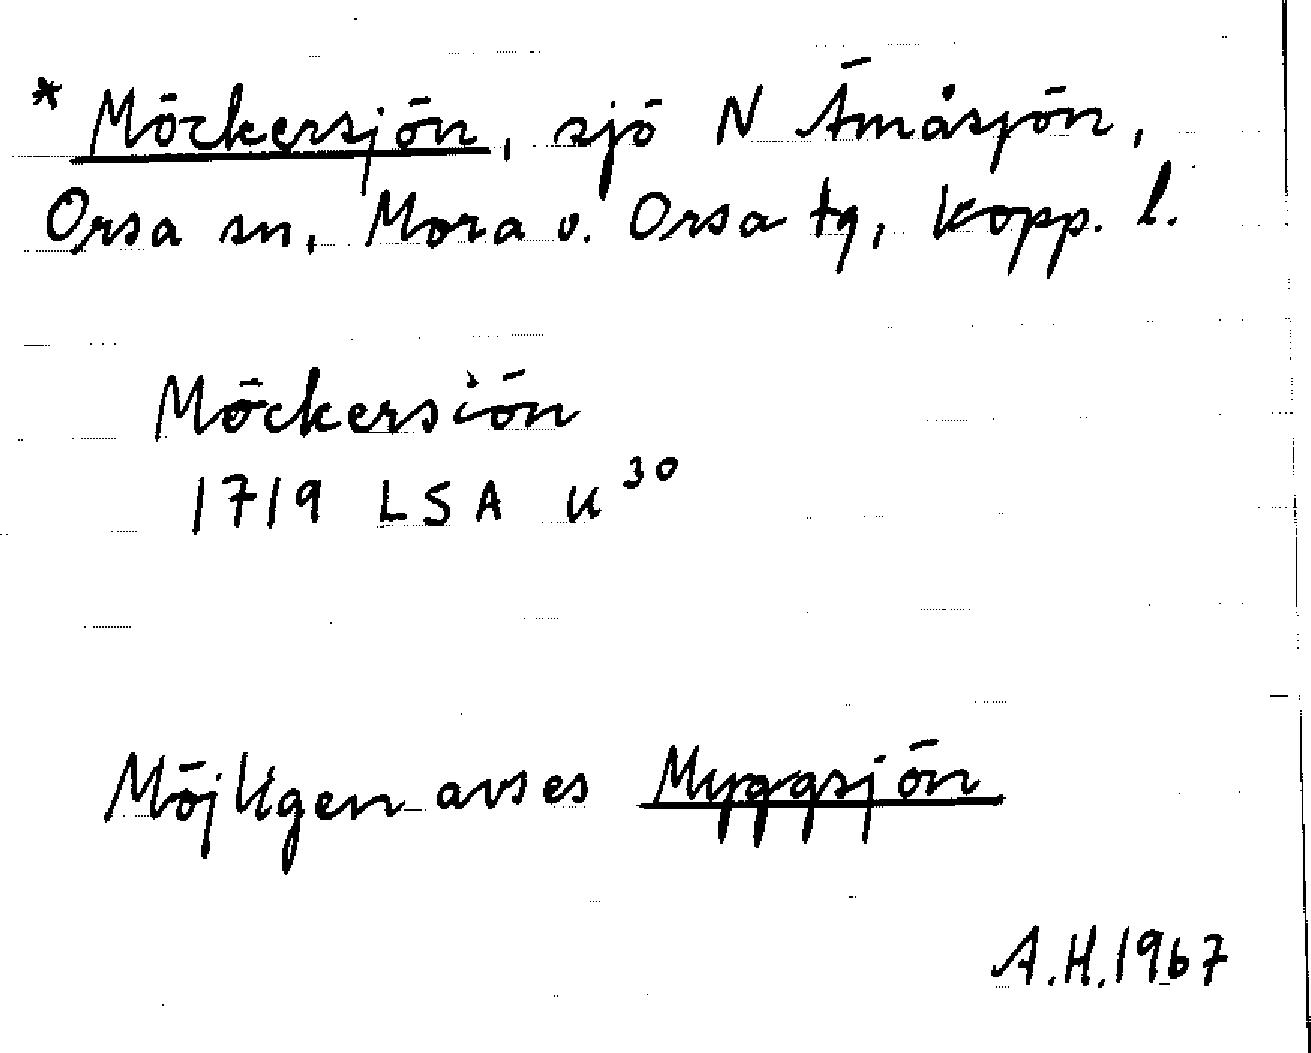 * Möckersjön, sjö N Ämåsjön,
Orsa sn, Mora o. Orsa tg, Kopp. l.
Möckersiön
1719 LSA U 30
Möjligen avses Myggsjön
A.H. 1967